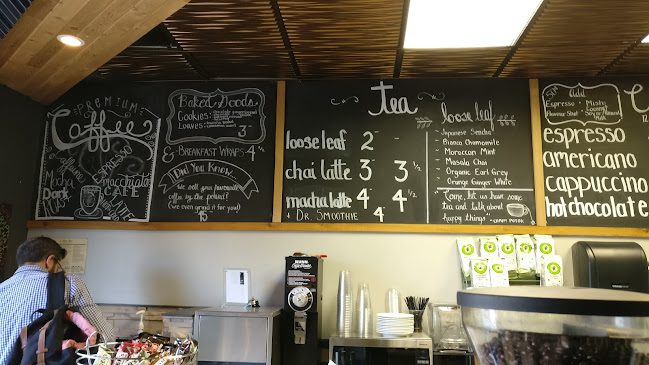 PREMIUM
Coffee
ESPRESSO
Mocha
macchiato
DARK
LATTE
Baked Goods
Cookies:
Loaves:
3
& BREAKFAST WRAPS 4 1/2
Did You Know...
we sell your favourite
coffee by the pound!
(we even grind it for you!)
15
tea
loose leaf 2
chai latte 3 3 1/2
macha latte 4 4 1/2
+ DR. SMOOTHIE 4
loose leaf
- Japanese Sencha
- Bianca Chamomile
- Moroccan Mint
- Masala Chai
- Organic Earl Grey
- Orange Ginger White
"Come, let us have some
tea and talk about
happy things."
Add
Espresso
Flavour Shot
Soy or Almond
Milk
espresso
americano
cappuccino
hot chocolate
C
12